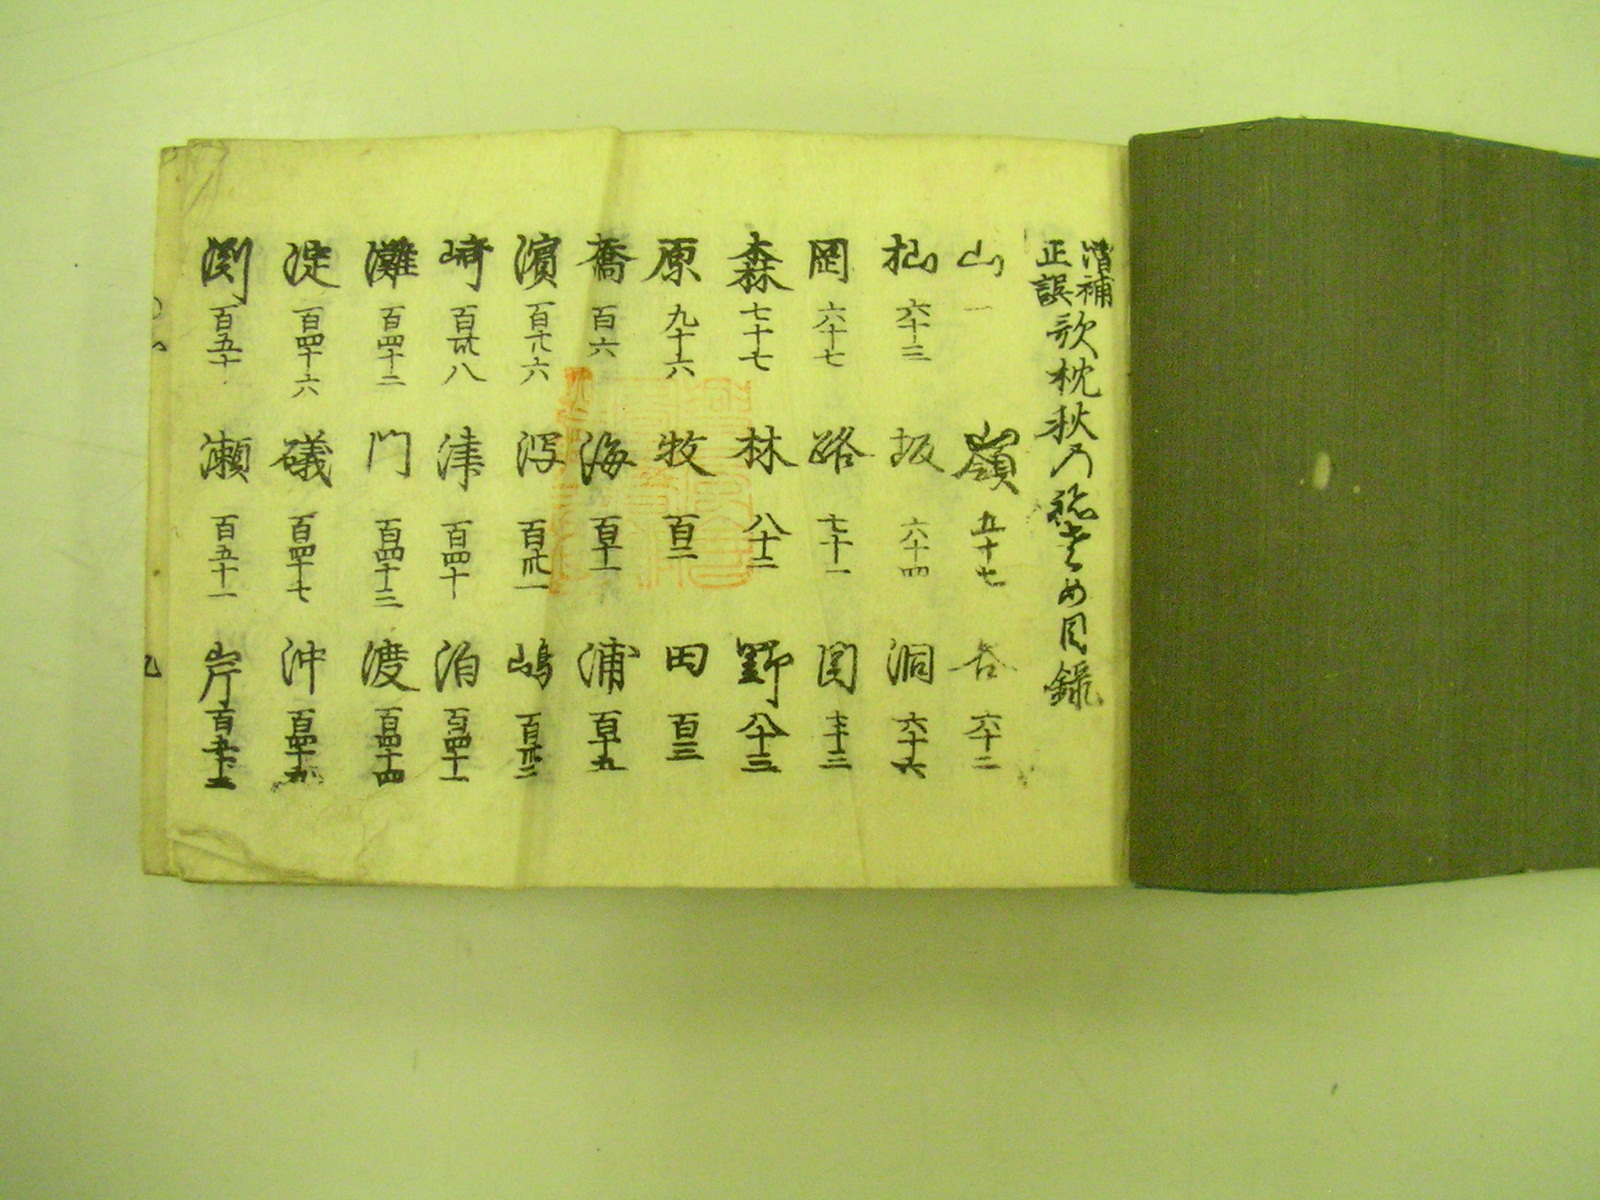 増補
正誤
歌枕秋乃祢さめ目録
山 一 嶺 五十七 谷 六十二
杣 六十三 坂 六十四 洞 六十六
岡 六十七 路 七十一 関 七十二
森 七十七 林 八十二 野 八十三
原 九十六 牧 百二 田 百三
橋 百六 海 百十一 浦 百十九
濱 百廿六 潟 百卅一 嶋 百卅二
崎 百卅八 津 百四十 泊 百四十一
灘 百四十二 門 百四十三 渡 百四十四
淀 百四十六 礒 百四十七 沖 百四十九
渕 百五十 瀬 百五十一 岸